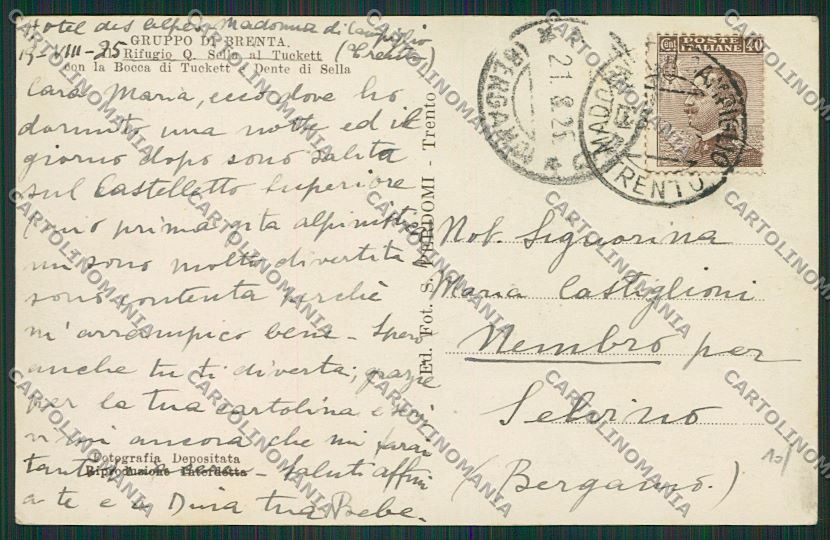 Hotel des Alpes Madonna di Campiglio
19-VIII-25 (Trento)
GRUPPO DI BRENTA.
Il Rifugio Q. Sella al Tuckett
con la Bocca di Tuckett e Dente di Sella
Cara Maria, ecco dove ho
dormito una notte ed il
giorno dopo sono salita
sul Castelletto Superiore
(mia prima gita alpinistica)
mi sono molto divertita
sono contenta perchè
m'arrampico bene - Spero
anche tu ti diverta; grazie
per la tua cartolina e scri
vimi ancora che mi farai
Fotografia Depositata
Riproduzione Interdetta
tanto - Saluti affmi
a te e a Dina tua Bebe.
Ed. Fot. S. PERDOMI - Trento
(BERGAMO)
21.8.25
MADONNA CAMPIGLIO
TRENTO
POSTE ITALIANE
Cent 40
Nob. Signorina
Maria Castiglioni
Nembro per
Selvino
(Bergamo.)
CARTOLINOMANIA